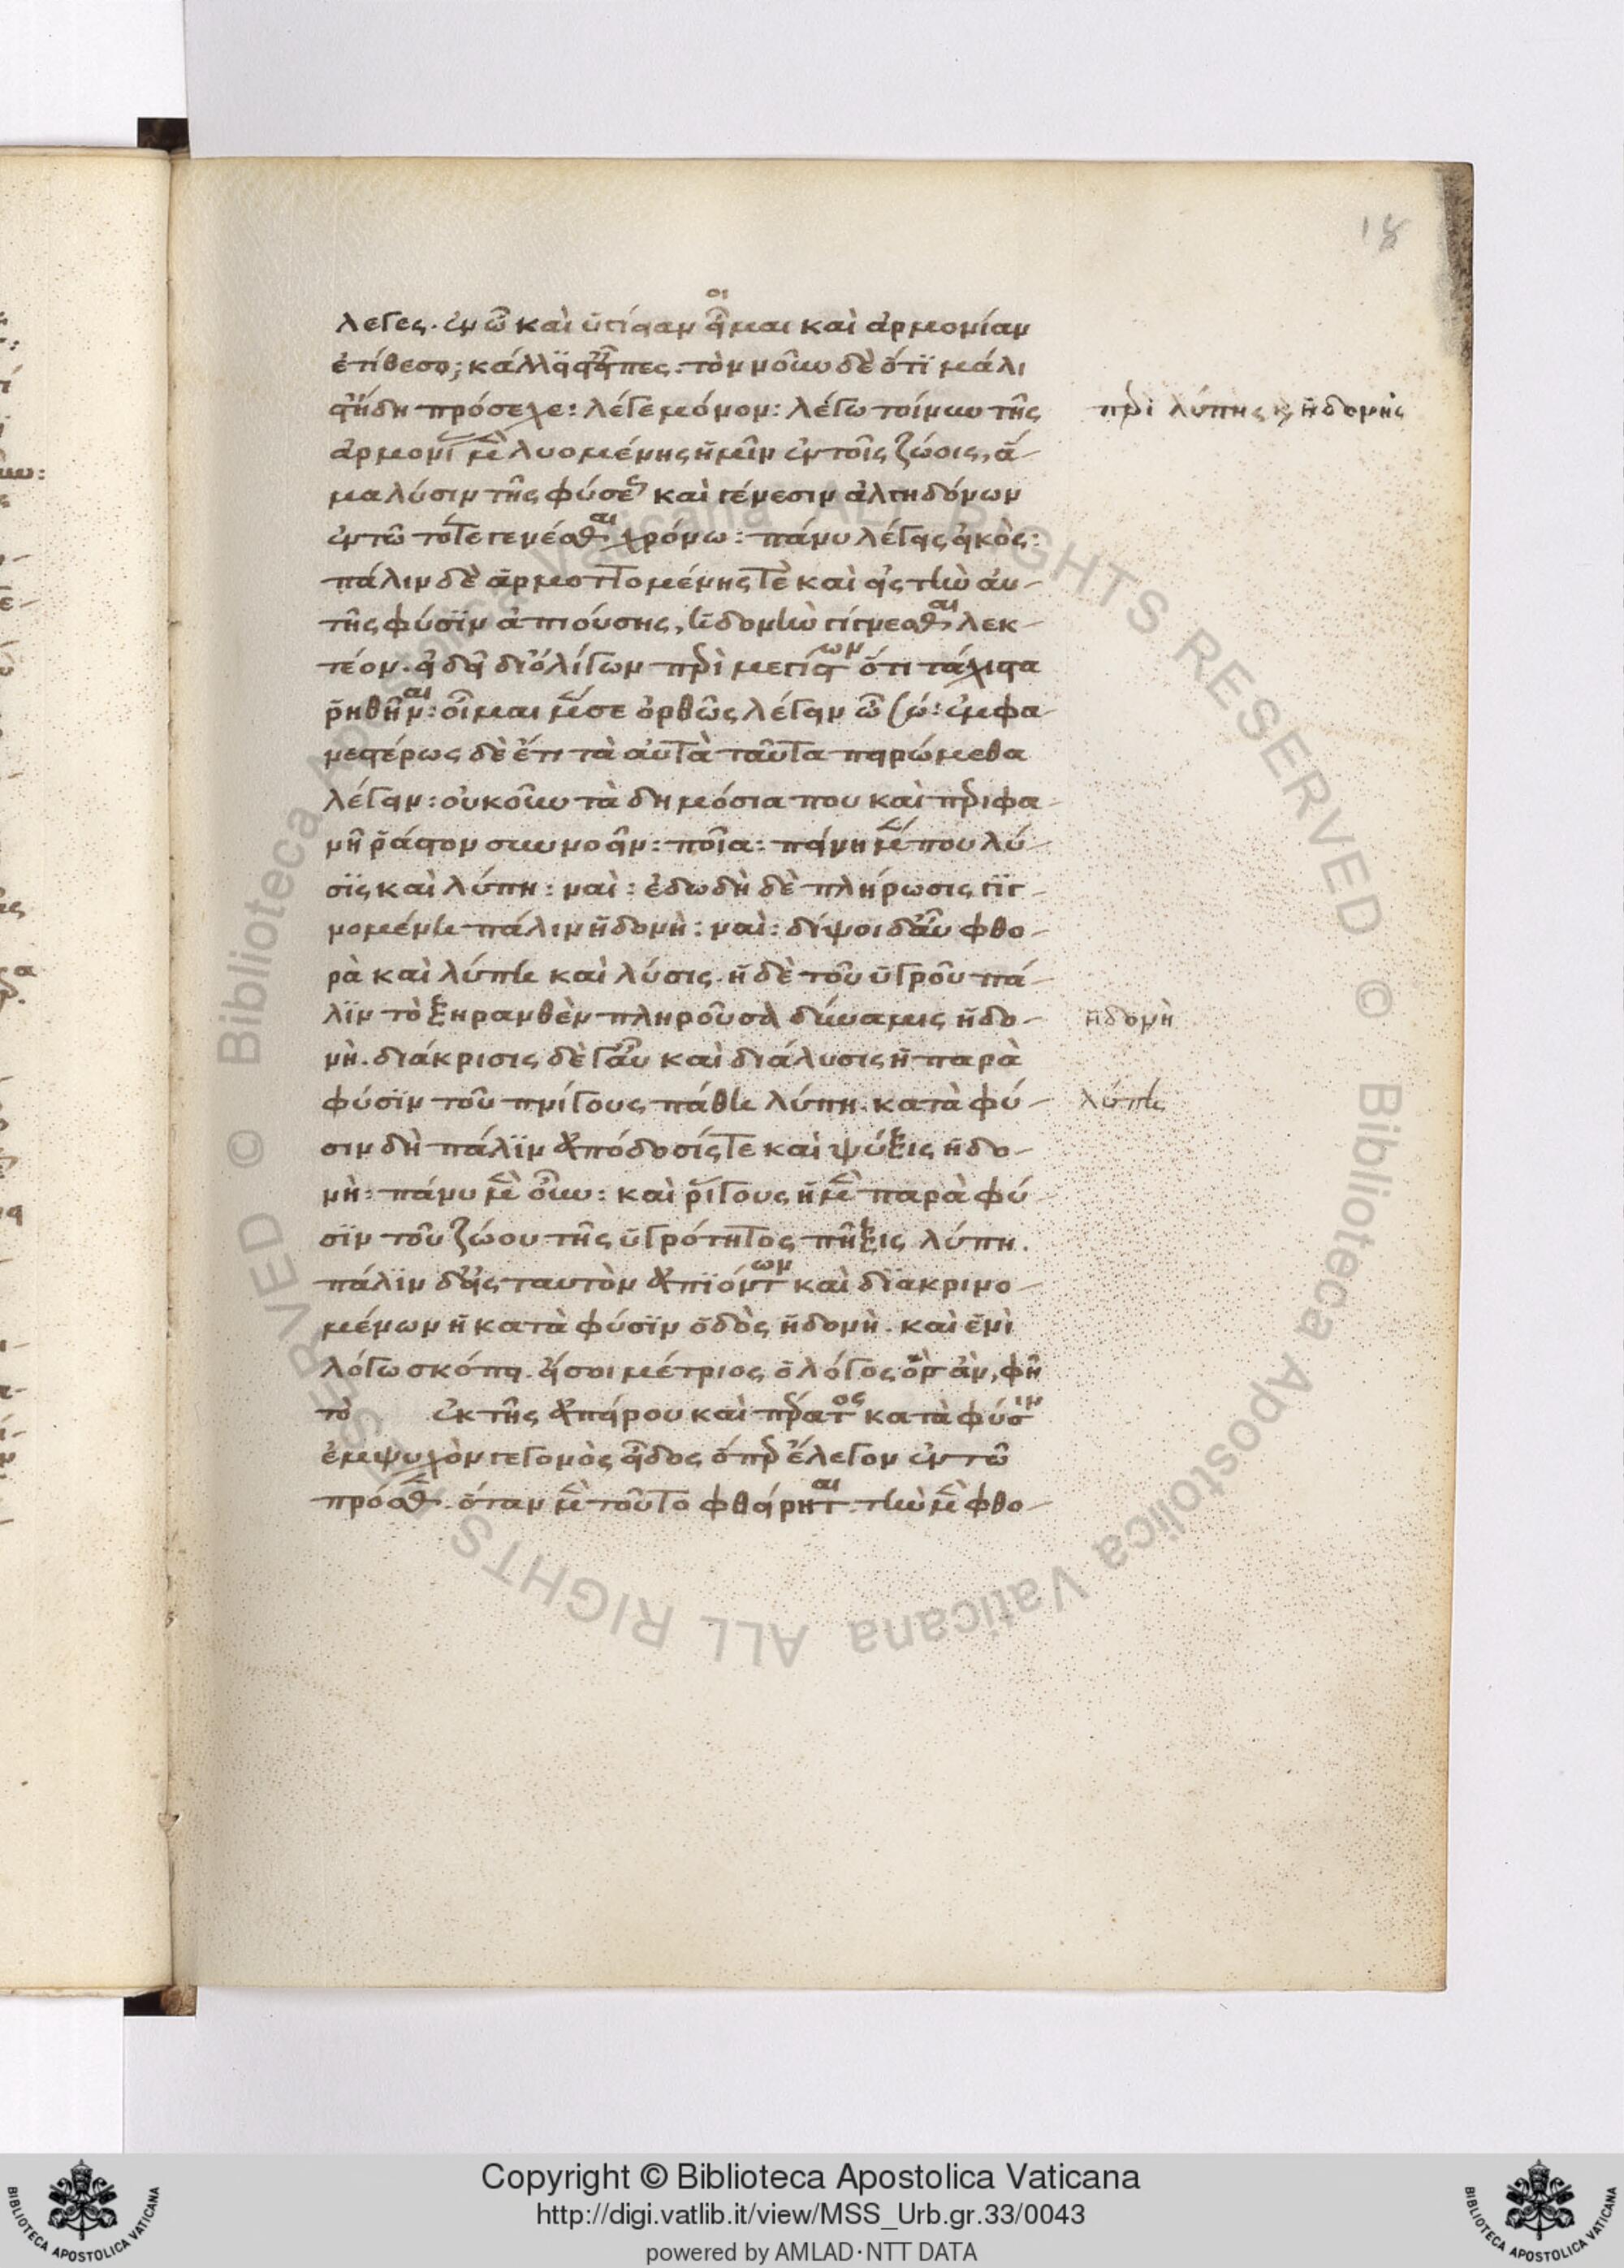 18
λεγες. ἐν ᾧ καὶ ὑγίειαν οἶμαι καὶ ἁρμονίαν
ἐτίθεσο; κάλλιστ' εἶπες. τὸν νοῦν δὲ ὅτι μάλι
στ' ἤδη πρόσεχε: λέγε μόνον: λέγω τοίνυν τῆς
περὶ λύπης καὶ ἡδονῆς
ἁρμονίας μὲν λυομένης ἡμῖν ἐν τοῖς ζώοις, ἅ-
μα λύσιν τῆς φύσεως καὶ γένεσιν ἀλγηδόνων
ἐν τῶ τότε γενέσθαι χρόνω: πάνυ λέγεις εἰκὸς:
πάλιν δὲ ἁρμοττομένης τὲ καὶ εἰς τὴν αὑ-
τῆς φύσϊν ἀπιούσης, ἡδονὴν γίγνεσθαι λεκ-
τέον. εἰ δεῖ δι' ὀλίγων περὶ μεγίστων ὅτι τάχιστα
ῥηθῆναι: οἶμαι μέν σε ὀρθῶς λέγειν ὦ σώ: ἐμφα-
νεστέρως δὲ ἔτι τὰ αὐτὰ ταῦτα πειρώμεθα
λέγειν: οὐκοῦν τὰ δημόσια που καὶ περιφα-
νῆ ῥᾷστον συννοεῖν: ποῖα: πείνη μέν που λύ-
σϊς καὶ λύπη: ναί: ἐδωδὴ δὲ πλήρωσις γϊγ-
νομένη πάλιν ἡδονὴ: ναὶ: δίψος δ' αὖ φθο-
ρὰ καὶ λύπη καὶ λύσις. ἡ δὲ τοῦ ὑγροῦ πά-
λϊν τὸ ξηρανθὲν πληροῦσα δύναμις ἡδο-
ἡδονὴ
νὴ. διάκρισις δὲ γ' αὖ καὶ διάλυσις ἡ παρὰ
φύσϊν τοῦ πνίγους πάθη λύπη. κατὰ φύ-
λύπη
σιν δὴ πάλϊν ἀπόδοσίς τε καὶ ψύξις ἡδο-
νὴ: πάνυ μὲν οὖν: καὶ ῥίγους ἡ μὲν παρὰ φύ-
σϊν τοῦ ζώου τῆς ὑγρότητος πῆξις λύπη.
πάλϊν δ' εἰς ταυτὸν ἀπϊόντων καὶ δϊακρινο-
μένων ἡ κατὰ φύσϊν ὁδὸς ἡδονὴ. καὶ ἑνὶ
λόγω σκόπει. εἴ σοι μέτριος ὁ λόγος ὃς ἂν, φῆ
τὸ ἐκ τῆς ἀπείρου καὶ πέρατος κατὰ φύσιν
ἐμψυχὸν γεγονὸς εἶδος ὅπερ ἔλεγον ἐν τῶ
πρόσθεν. ὅταν μὲν τοῦτο φθείρηται. τὴν μὲν φθο-
Copyright © Biblioteca Apostolica Vaticana
http://digi.vatlib.it/view/MSS_Urb.gr.33/0043
powered by AMLAD·NTT DATA